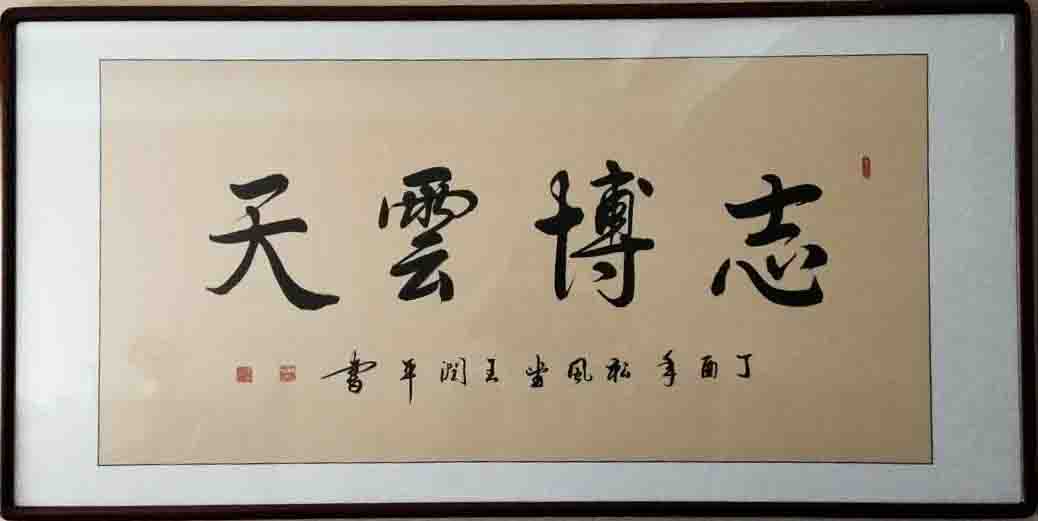 志博雲天
丁酉年松風堂王潤平書